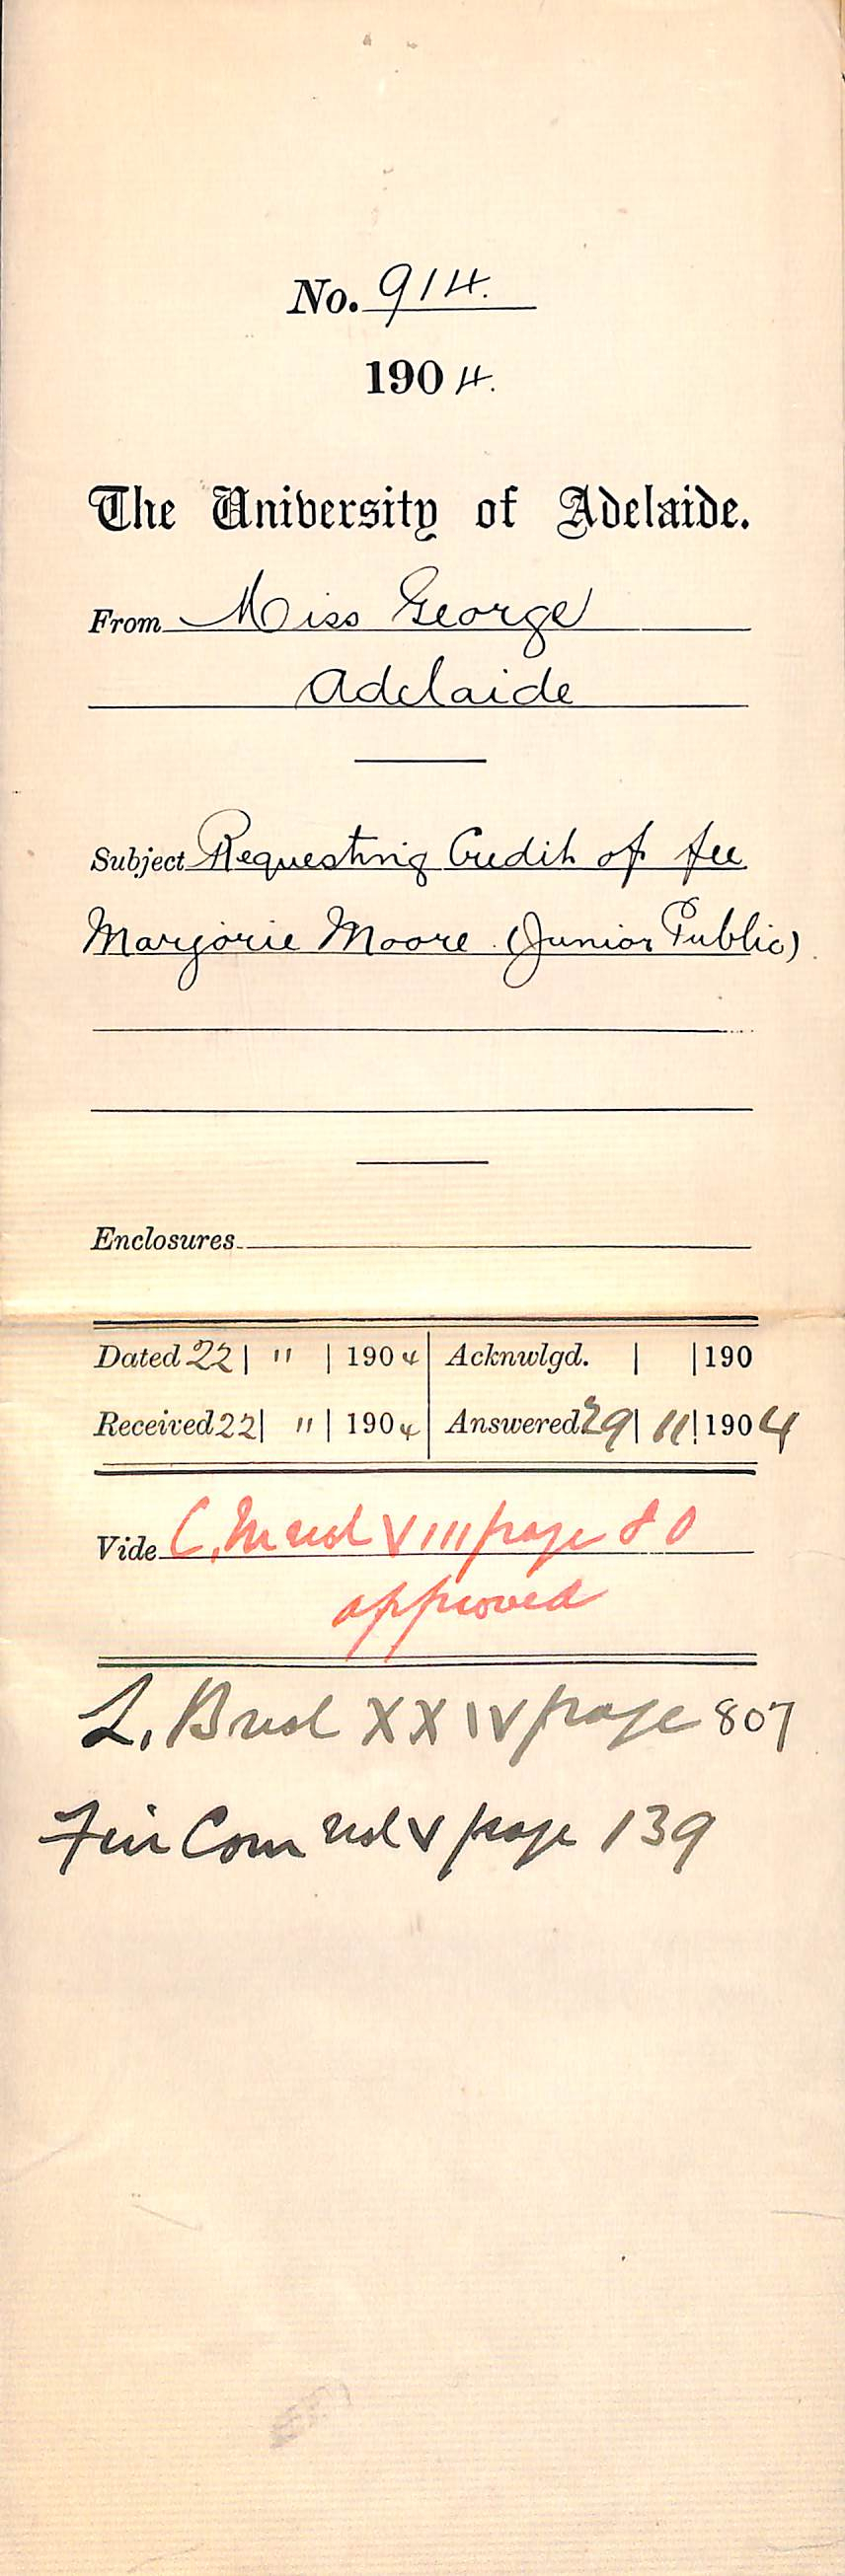 No. 914.
1904.
The University of Adelaide.
From Miss George
Adelaide
Subject Requesting Credit of fee
Marjorie Moore (Junior Public).
Enclosures
Dated 22 | 11 | 1904 | Acknwlgd. | | 190
Received 22 | 11 | 1904 | Answered 29 | 11 | 1904
Vide C. M vol VIII page 80
approved
L. B vol XXIV page 807
Fin Com vol V page 139